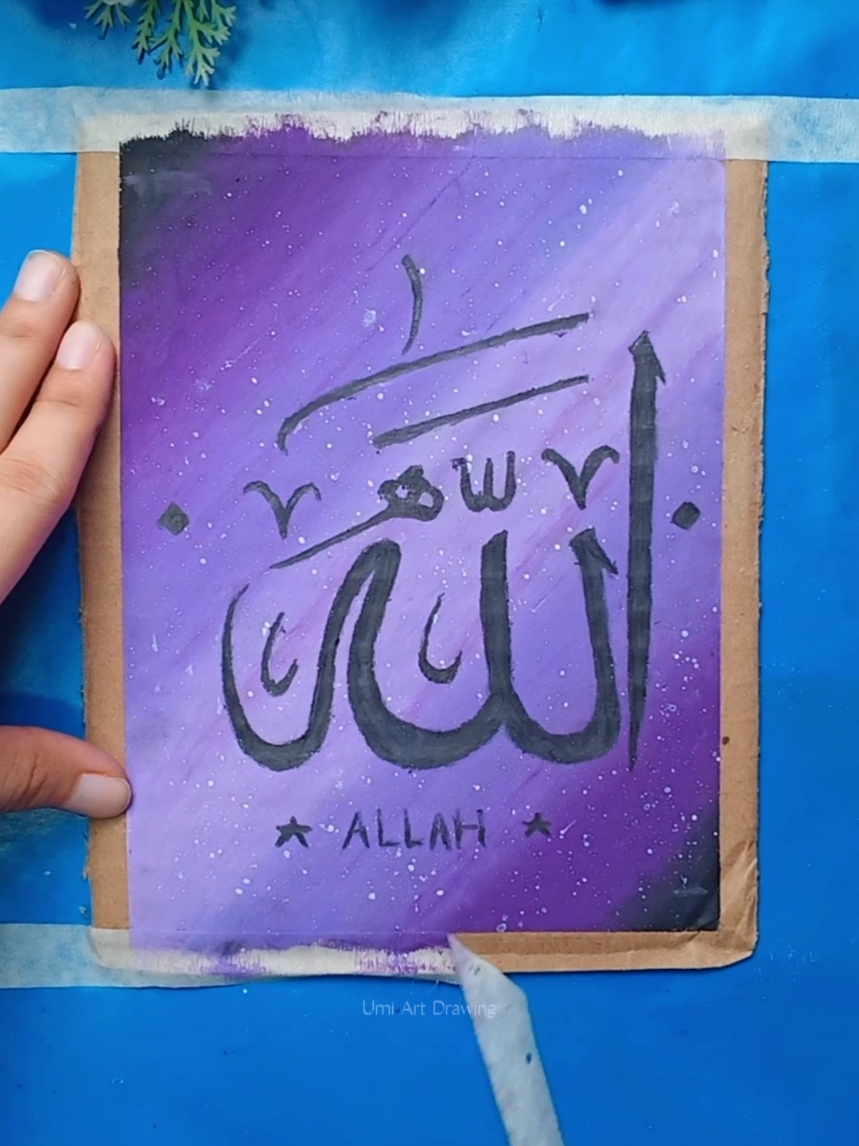 الله
ALLAH
Umi Art Drawing